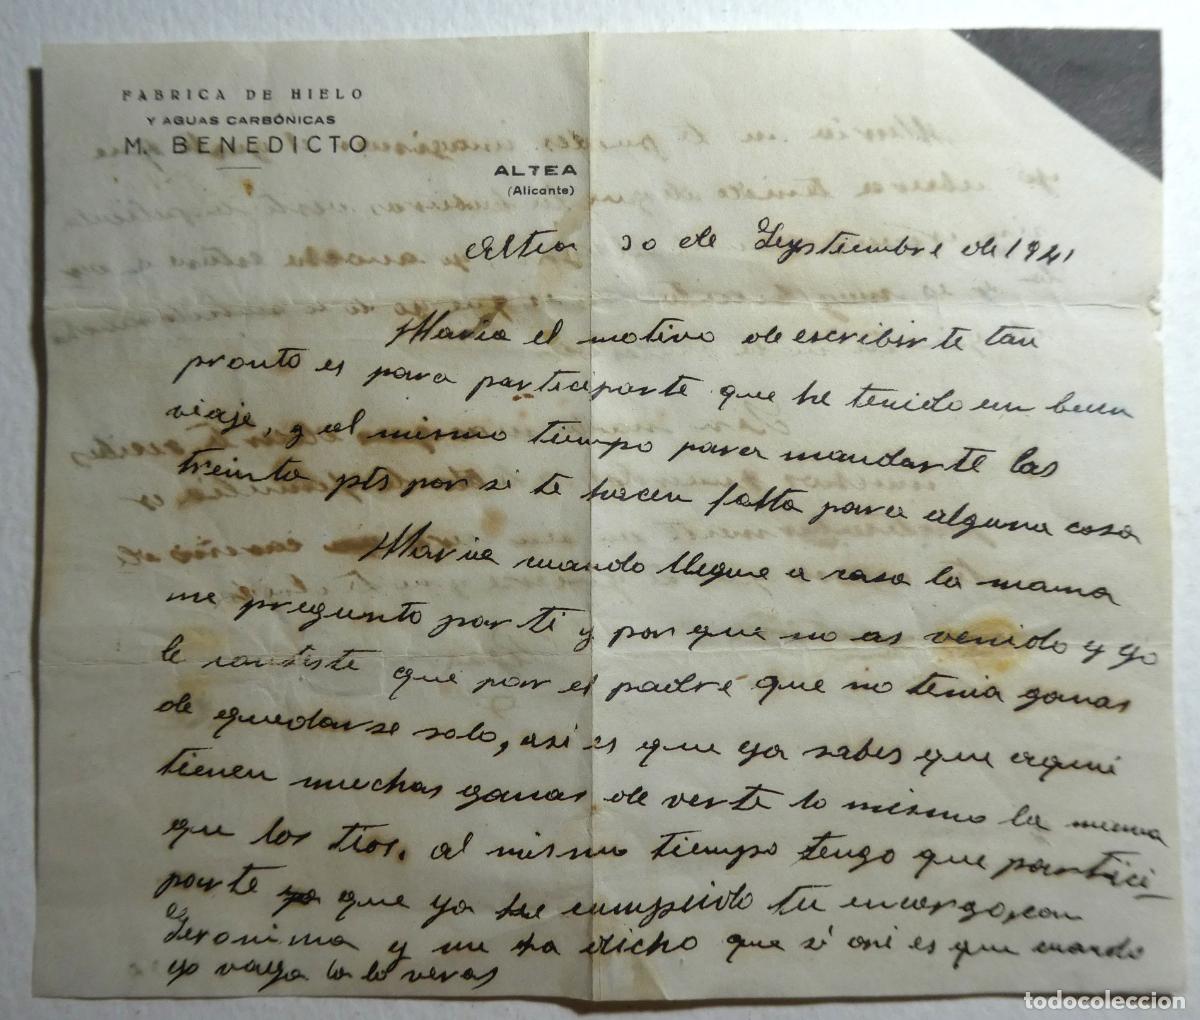 FABRICA DE HIELO
Y AGUAS CARBÓNICAS
M. BENEDICTO
ALTEA
(Alicante)
Altea 30 de Septiembre de 1941
Maria el motivo de escribirte tan
pronto es para participarte que he tenido un buen
viaje, y al mismo tiempo para mandarte las
treinta pts por si te hacen falta para alguna cosa
Maria cuando llegue a casa la mama
me pregunto por ti y por que no as venido y yo
le conteste que por el padre que no tenia ganas
de quedarse solo, asi es que ya sabes que aqui
tienen muchas ganas de verte lo mismo la mama
que los tios, al mismo tiempo tengo que partici
parte que ya he cumplido tu encargo, con
Geronima y me ha dicho que si asi es que cuando
yo vaya lo veras
todocoleccion